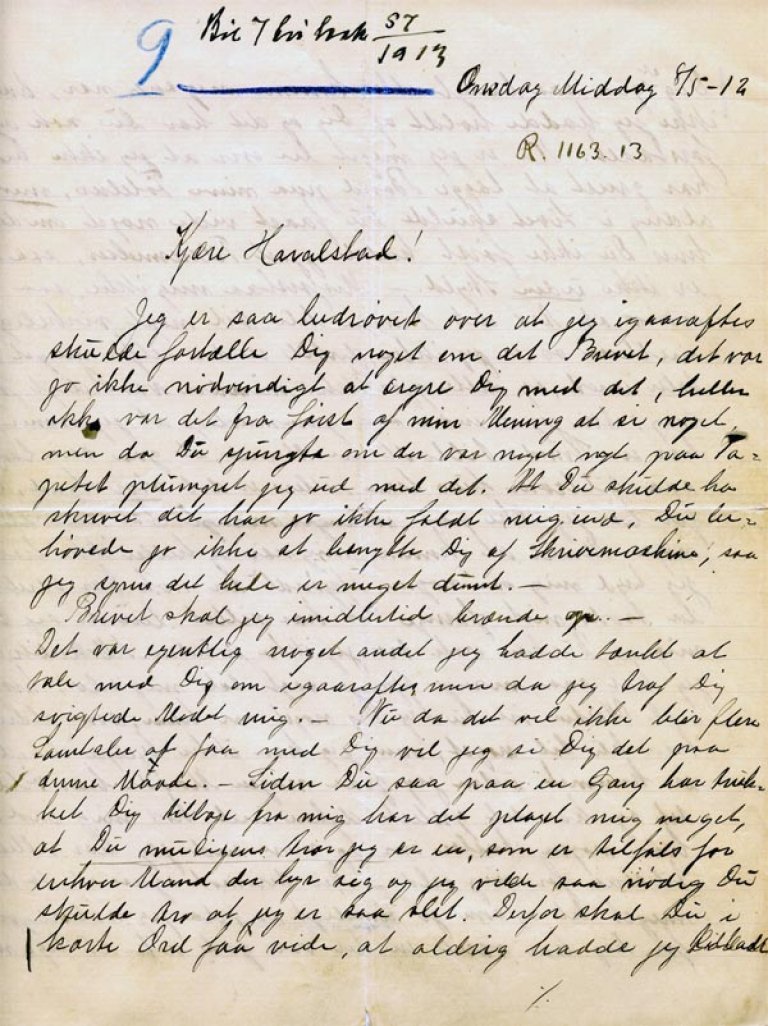 9
Bil 7 57/1913
Onsdag Middag 8/5-12
R. 1163. 13
Kjære Havalstad!
Jeg er saa bedrøvet over at jeg igaaraftes
skulde fortælle Dig noget om det Brevet, det var
jo ikke nødvendigt at ærgre Dig med det, heller
ikke var det fra først af min Mening at si noget,
men da Du spurgte om der var noget nyt paa Ta-
petet plumpet jeg ud med det. At Du skulde ha
skrevet det har jo ikke faldt mig ind, Du be-
høvede jo ikke at benytte Dig af Skrivemaskine, saa
jeg synes det hele er meget dumt. —
Brevet skal jeg imidlertid brænde op. —
Det var egentlig noget andet jeg hadde tænkt at
tale med Dig om igaaraftes men da jeg traf Dig
svigtede Modet mig. — Nu da det vel ikke blir flere
Samtaler at faa med Dig vil jeg si Dig det paa
denne Maade. — Siden Du saa paa en Gang har truk-
ket Dig tilbage fra mig har det plaget mig meget,
at Du muligens tror jeg er en, som er tilfals for
enhver Mand der byr sig og jeg vilde saa nødig Du
skulde tro at jeg er saa slet. Derfor skal Du i
korte Ord faa vide, at aldrig hadde jeg
%